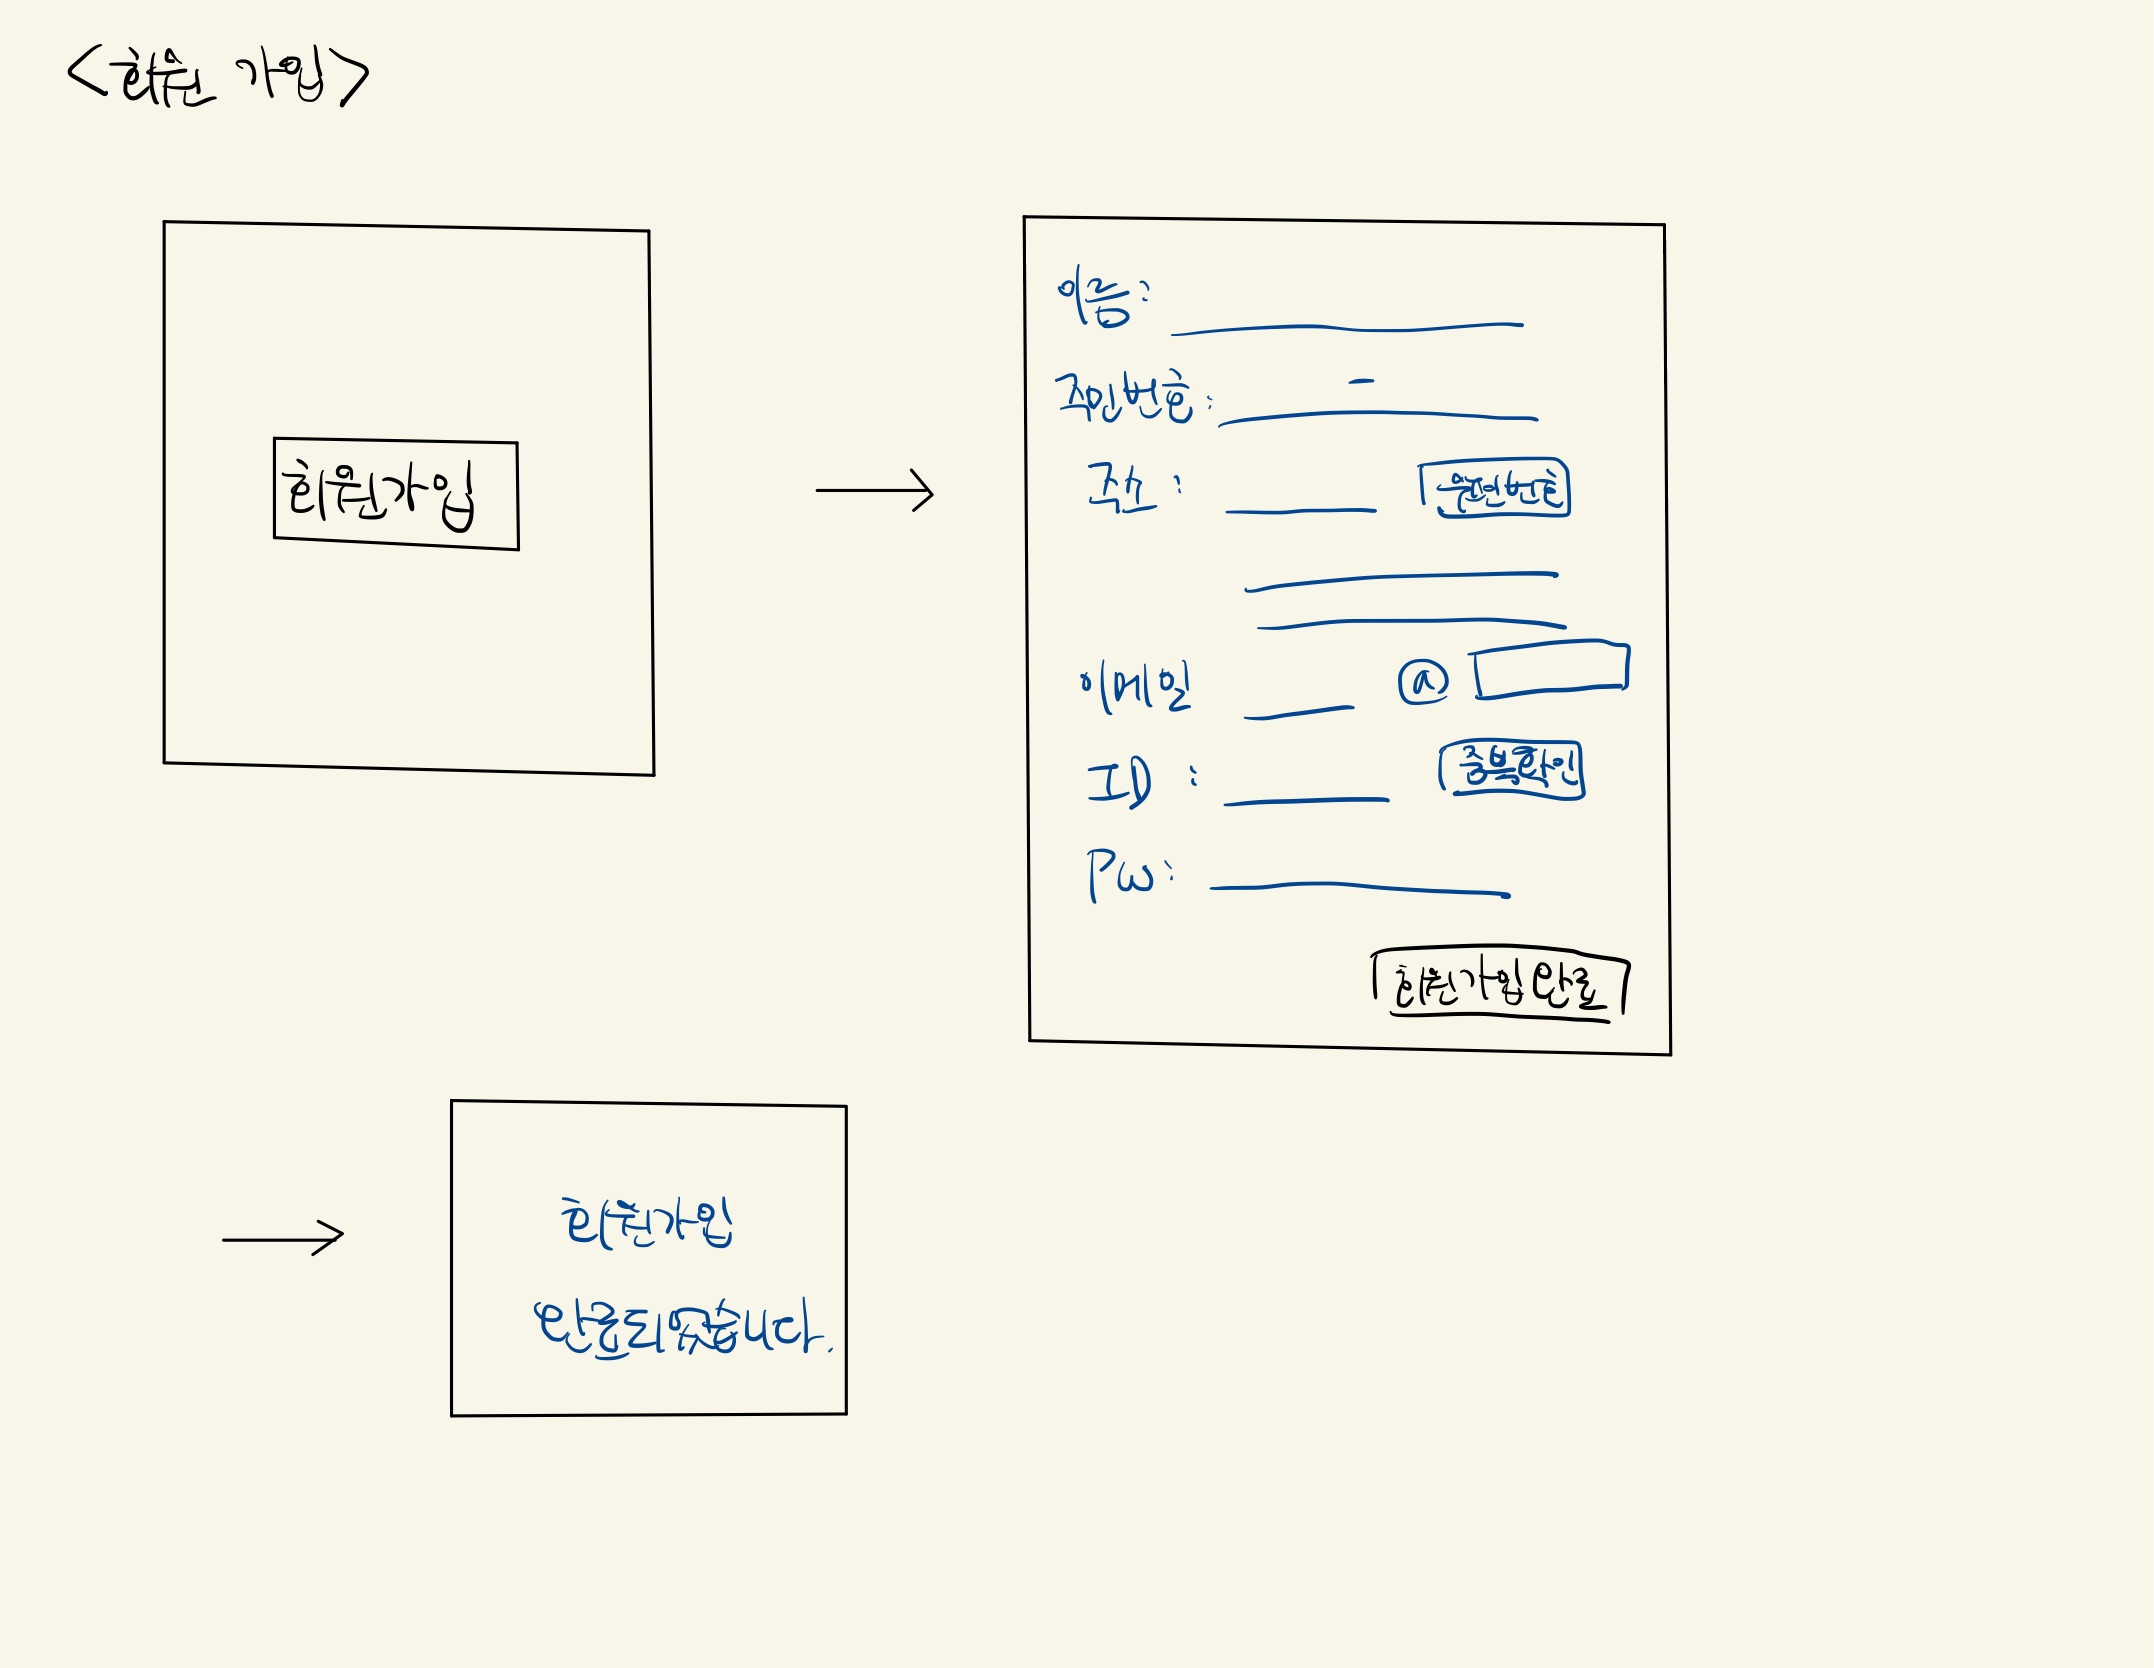 <회원 가입>
회원가입
이름:
주민번호: -
주소: 우편번호
이메일 @
ID: 중복확인
PW:
회원가입 완료
회원가입
완료되었습니다.